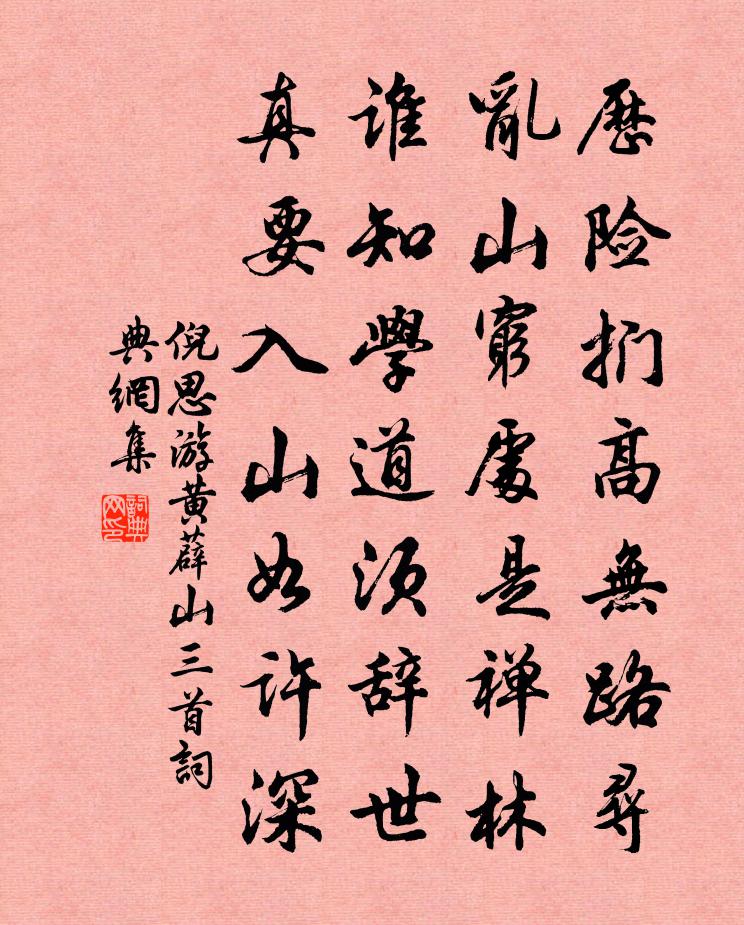 歷险捫高無路尋
亂山窮處是禅林
谁知學道须辞世
真要入山如许深
倪思游黄薜山三首詞
典網集
詞典网印